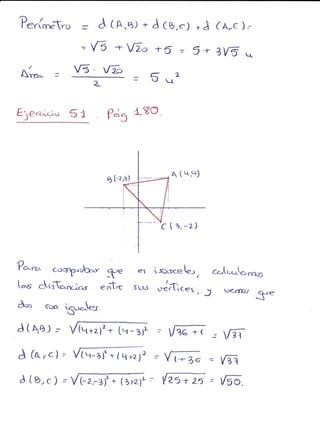 Perímetro = d(A,B) + d(B,C) + d(A,C) =
= √5 + √20 + 5 = 5 + 3√5 u
Área = √5 · √20 / 2 = 5 u²
Ejercicio 51. Pág 180.
B(-2,3)
A(4,4)
C(3,-2)
Para comprobar que es isósceles, calculamos
las distancias entre sus vértices, y vemos que
dos son iguales.
d(A,B) = √(4+2)² + (4-3)² = √36 + 1 = √37
d(A,C) = √(4-3)² + (4+2)² = √1 + 36 = √37
d(B,C) = √(-2-3)² + (3+2)² = √25 + 25 = √50.